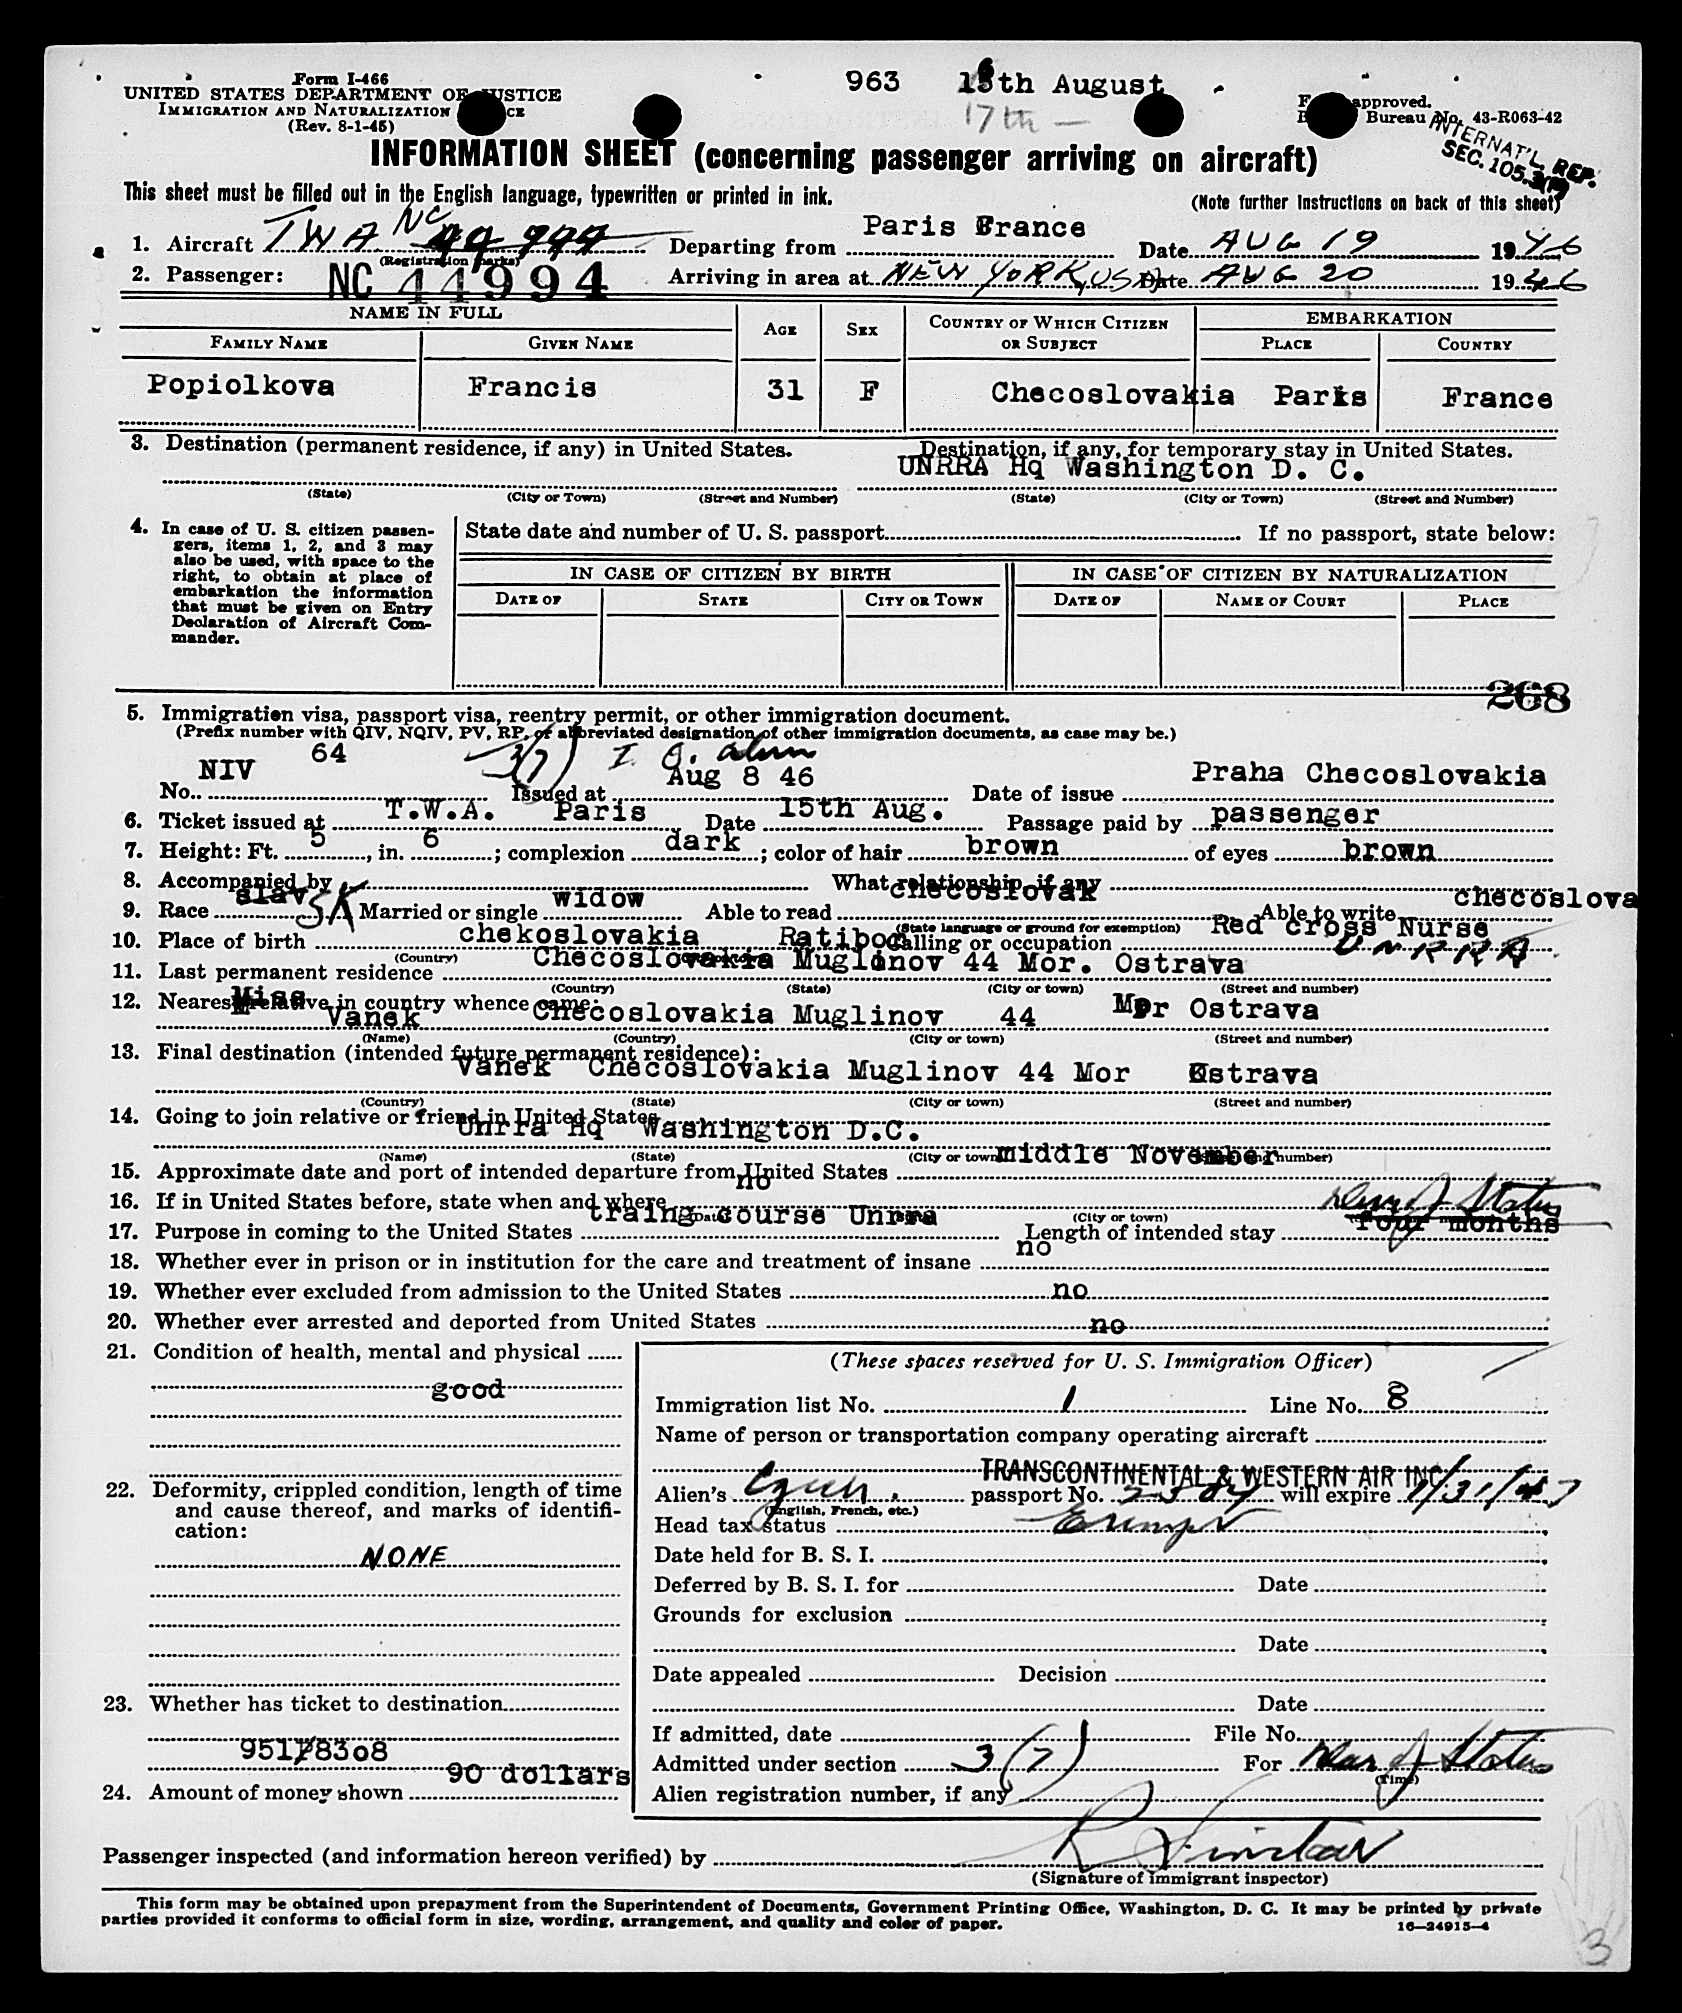 Form I-466
UNITED STATES DEPARTMENT OF JUSTICE
IMMIGRATION AND NATURALIZATION
(Rev. 8-1-45)
963 16th August
17th —
approved.
Bureau No. 43-R063-42
INTERNAT'L REP.
SEC. 105.3(1)
INFORMATION SHEET (concerning passenger arriving on aircraft)
This sheet must be filled out in the English language, typewritten or printed in ink.
(Note further instructions on back of this sheet)
1. Aircraft TWA NC Departing from Paris France Date AUG 19 1946
(Registration marks)
2. Passenger: NC 44994 Arriving in area at NEW YORK, USA Date AUG 20 1946
NAME IN FULL AGE SEX COUNTRY OF WHICH CITIZEN OR SUBJECT EMBARKATION
FAMILY NAME GIVEN NAME PLACE COUNTRY
Popiolkova Francis 31 F Checoslovakia Paris France
3. Destination (permanent residence, if any) in United States. Destination, if any, for temporary stay in United States.
UNRRA Hq Washington D. C.
(State) (City or Town) (Street and Number) (State) (City or Town) (Street and Number)
4. In case of U. S. citizen passen-
gers, items 1, 2, and 3 may
also be used, with space to the
right, to obtain at place of
embarkation the information
that must be given on Entry
Declaration of Aircraft Com-
mander.
State date and number of U. S. passport If no passport, state below:
IN CASE OF CITIZEN BY BIRTH IN CASE OF CITIZEN BY NATURALIZATION
DATE OF STATE CITY OR TOWN DATE OF NAME OF COURT PLACE
268
5. Immigration visa, passport visa, reentry permit, or other immigration document.
(Prefix number with QIV, NQIV, PV, RP, or abbreviated designation of other immigration documents, as case may be.)
64 3(7) I. O. alien
NIV Aug 8 46 Praha Checoslovakia
No. Issued at Date of issue
6. Ticket issued at T.W.A. Paris Date 15th Aug. Passage paid by passenger
7. Height: Ft. 5, in. 6; complexion dark; color of hair brown of eyes brown
8. Accompanied by What relationship, if any
9. Race slav SK Married or single widow Able to read checoslovak Able to write checoslova
(State language or ground for exemption)
10. Place of birth chekoslovakia Ratibor Calling or occupation Red cross Nurse UNRRA
(Country)
11. Last permanent residence Checoslovakia Muglinov 44 Mor. Ostrava
(Country) (State) (City or town) (Street and number)
12. Nearest relative in country whence came:
Miss Vanek Checoslovakia Muglinov 44 Mor Ostrava
(Name) (Country) (City or town) (Street and number)
13. Final destination (intended future permanent residence):
Vanek Checoslovakia Muglinov 44 Mor Ostrava
(Country) (State) (City or town) (Street and number)
14. Going to join relative or friend in United States
Unrra Hq Washington D.C.
(Name) (State) (City or town) (Street and number)
15. Approximate date and port of intended departure from United States middle November
16. If in United States before, state when and where no
(Date) (City or town)
17. Purpose in coming to the United States traing course Unrra Length of intended stay four months Dur of Status
18. Whether ever in prison or in institution for the care and treatment of insane no
19. Whether ever excluded from admission to the United States no
20. Whether ever arrested and deported from United States no
21. Condition of health, mental and physical
good
22. Deformity, crippled condition, length of time
and cause thereof, and marks of identifi-
cation:
NONE
23. Whether has ticket to destination
95178308
24. Amount of money shown 90 dollars
(These spaces reserved for U. S. Immigration Officer)
Immigration list No. 1 Line No. 8
Name of person or transportation company operating aircraft
TRANSCONTINENTAL & WESTERN AIR INC.
Alien's Czech passport No. will expire 7/31/47
(English, French, etc.)
Head tax status Exempt
Date held for B. S. I.
Deferred by B. S. I. for Date
Grounds for exclusion
Date
Date appealed Decision
Date
If admitted, date File No.
Admitted under section 3(7) For Dur of Status
(Time)
Alien registration number, if any
Passenger inspected (and information hereon verified) by R Sinclair
(Signature of immigrant inspector)
This form may be obtained upon prepayment from the Superintendent of Documents, Government Printing Office, Washington, D. C. It may be printed by private
parties provided it conforms to official form in size, wording, arrangement, and quality and color of paper.
16—24915-4
3